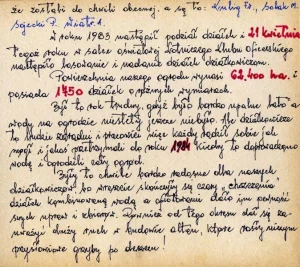 że zostałi do chwili obecnej. a są to: Kubiś Fr., Solak M.
Sajecki P.
W roku 1983 nastąpił podział działek i 21 kwietnia
tegoż roku w salce oświatowej Lotniczego Klubu Oficerskiego
nastąpiło losowanie i nadanie działek działkowiczom.
Powierzchnia naszego ogrodu wynosi 62.400 ha. i
posiada 1750 działek o różnych wymiarach.
Był to rok trudny, gdyż było bardzo upalne lato a
wody na ogrodzie niestety jeszcze nie było. Ale działkowicze
to ludzie zaradni i pracowici więc każdy radził sobie jak
mógł i jakoś przetrzymali do roku 1984 kiedy to doprowadzono
wodę i ogrodzili cały ogród.
Były to chwile bardzo radosne dla naszych
działkowiczów bo wreszcie skończyły się czasy chrzczenia
działek kombinowaną wodą a ogrodzenie dało im pewność
swych upraw i zbiorów. Również od tego okresu dał się za-
uważyć duży ruch w budowie altan, które rosły niczym
przysłowiowe grzyby po deszczu!